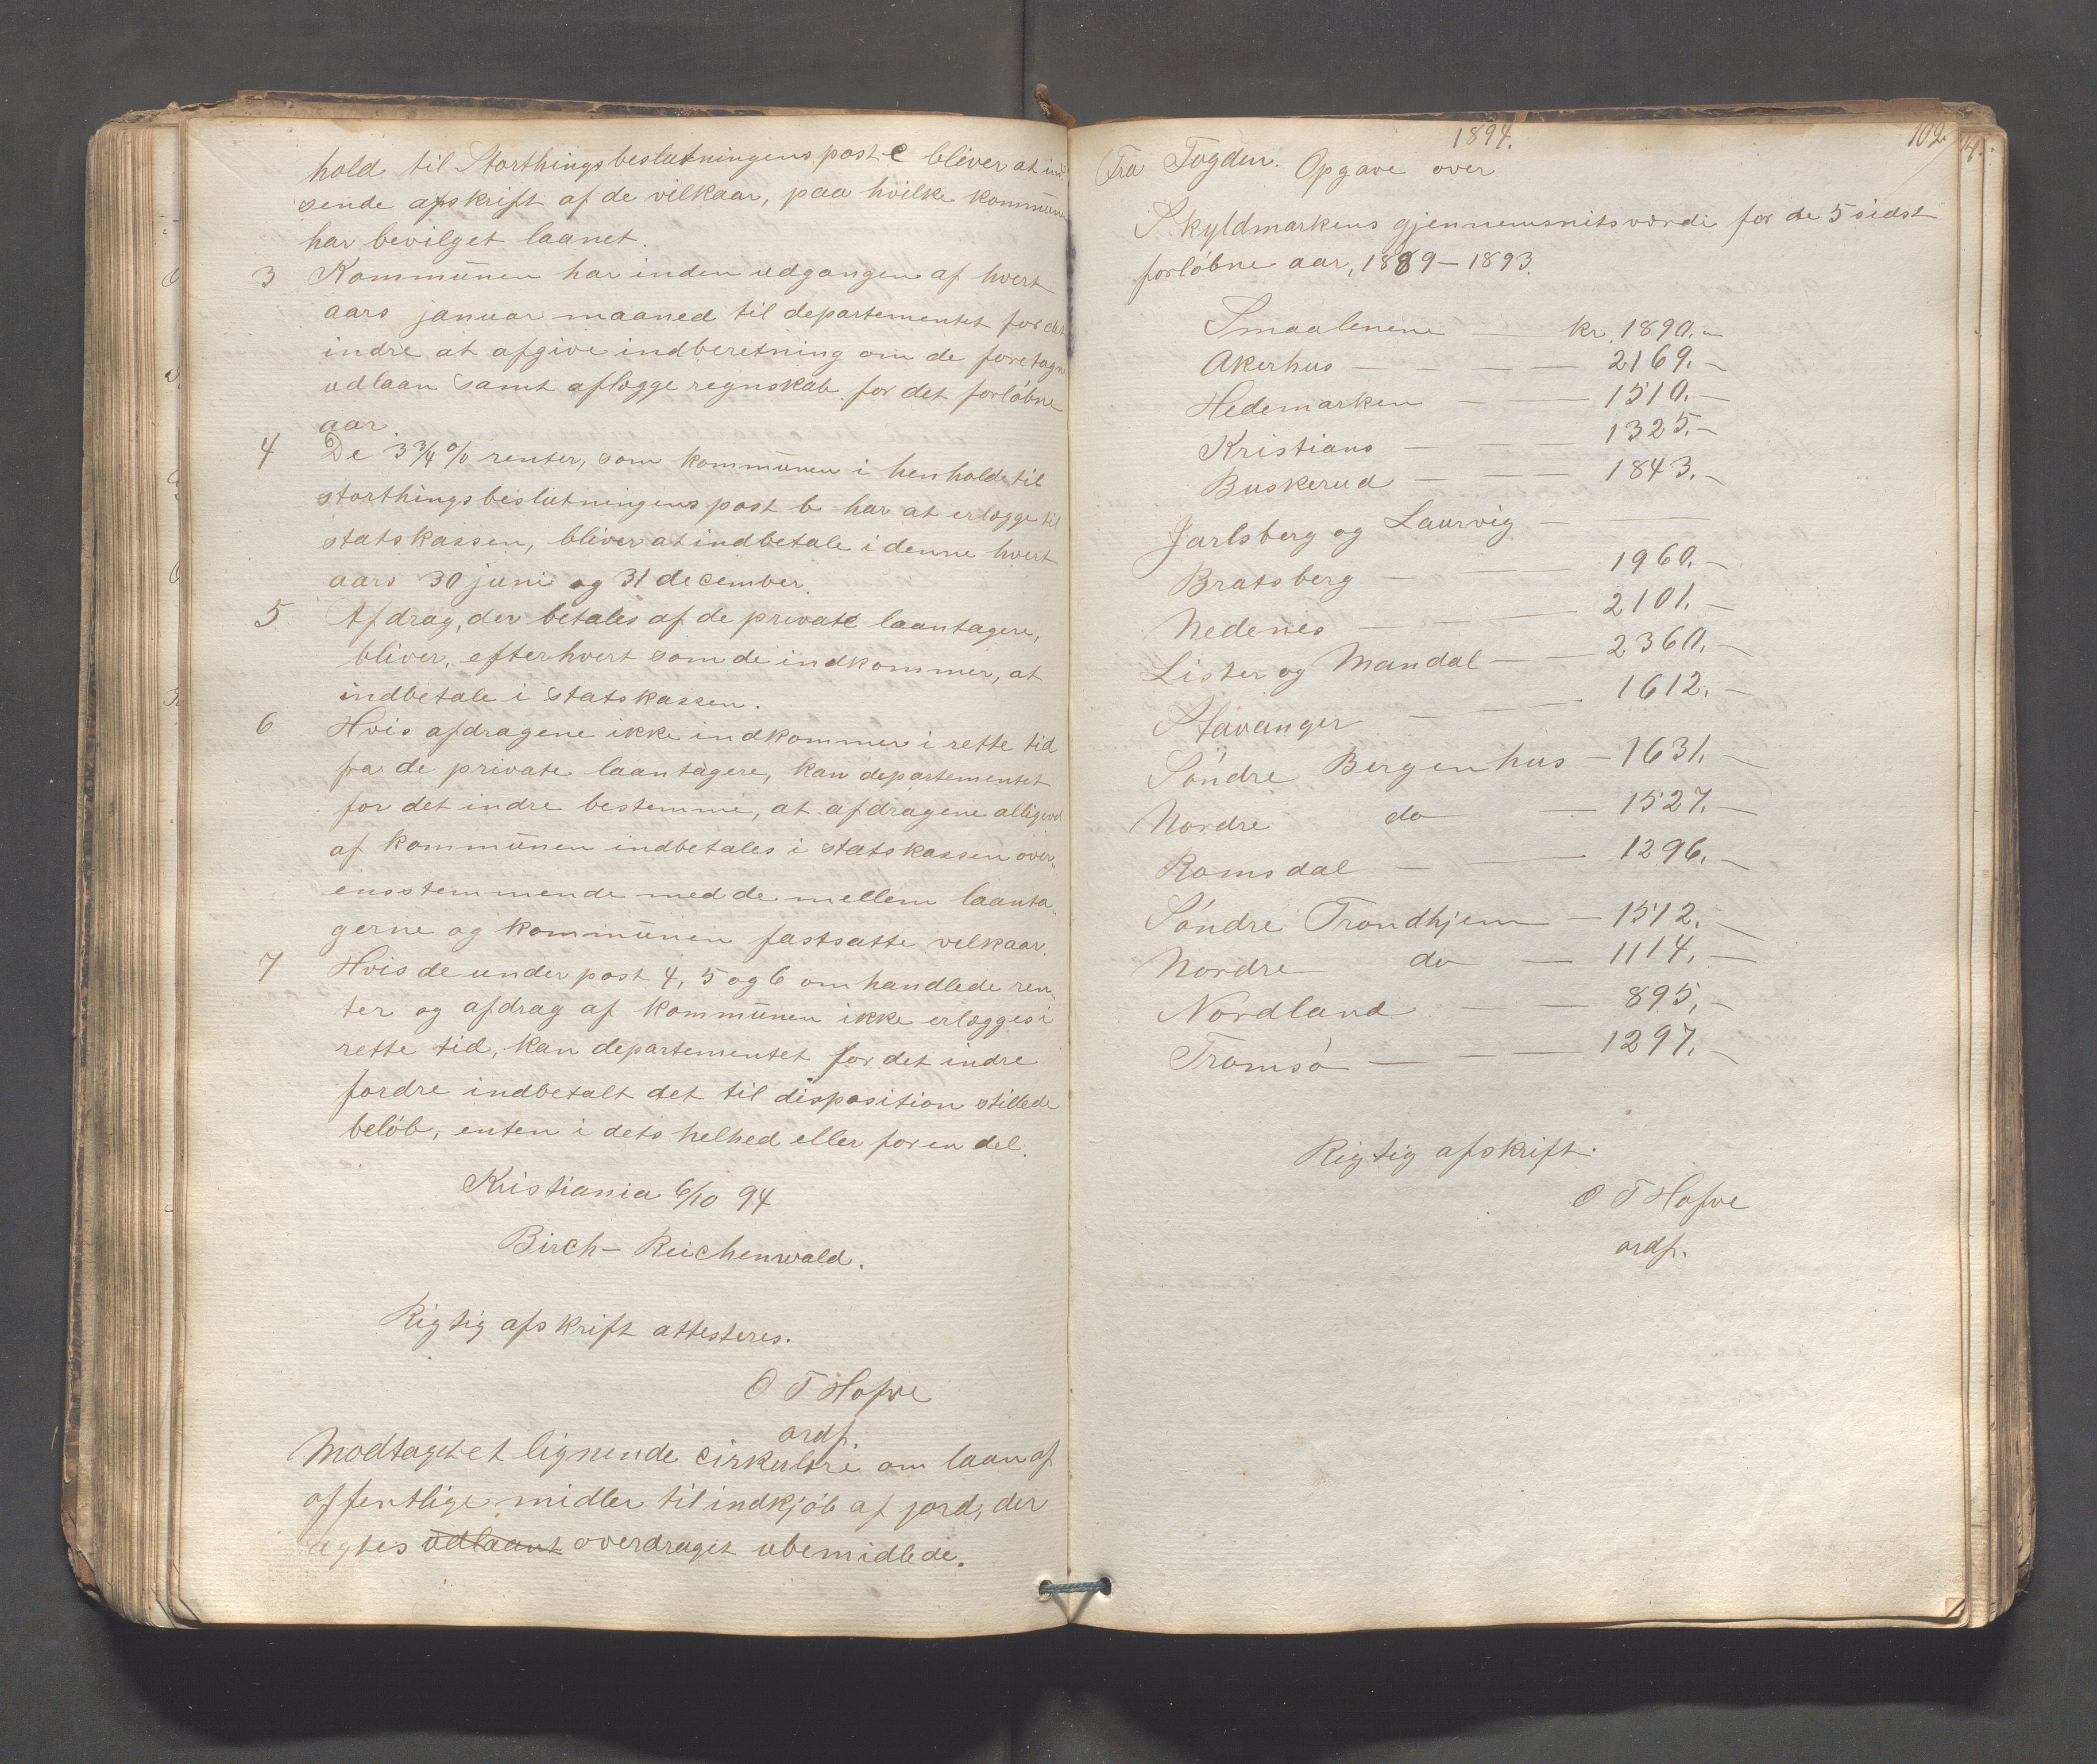 hold til Storthingsbeslutningens post c bliver at ind
sende afskrift af de vilkaar, paa hvilke kommunen
har bevilget laanet.
3 Kommunen har inden udgangen af hvert
aars januar maaned til departementet for det
indre at afgive indberetning om de foretagne
udlaan samt aflægge regnskab for det forløbne
aar.
4 De 3 3/4 % renter, som kommunen i henhold til
storthingsbeslutningens post b har at erlægge til
statskassen, bliver at indbetale i denne hvert
aars 30 juni og 31 december.
5 Afdrag, der betales af de private laantagere,
bliver, efterhvert som de indkommer, at
indbetale i statskassen.
6 Hvis afdragene ikke indkommer i rette tid
fra de private laantagere, kan departementet
for det indre bestemme, at afdragene alligevel
af kommunen indbetales i statskassen over„
ensstemmende med de mellem laanta„
gerne og kommunen fastsatte vilkaar.
7 Hvis de under post 4, 5 og 6 omhandlede ren„
ter og afdrag af kommunen ikke erlægges i
rette tid, kan departementet for det indre
fordre indbetalt det til disposition stillede
beløb, enten i dets helhed eller for en del.
Kristiania 6/10 94
Birch-Reichenwald.
Rigtig afskrift attesteres.
O T Hofve
ordf.
Modtaget et lignende cirkulære om laan af
offentlige midler til indkjøb af jord, der
agtes udlaant overdraget ubemidlede.
1894. 102.
Fra Fogden. Opgave over
Skyldmarkens gjennemsnitsværdi for de 5 sidst
forløbne aar, 1889-1893.
Smaalenene — kr. 1890.-
Akerhus — — — — 2169.-
Hedemarken — — 1510.-
Kristians — — — 1325.-
Buskerud — — — 1843.-
Jarlsberg og Laurvig — —
Bratsberg — — — 1960.-
Nedenes — — — 2101.-
Lister og Mandal — — 2360.-
Stavanger — — — 1612.-
Søndre Bergenhus — 1631.-
Nordre do — 1527.-
Romsdal — — 1296.-
Søndre Trondhjem — 1512.-
Nordre do — 1114.-
Nordland — — 895.-
Tromsø — — — 1297.-
Rigtig afskrift.
O T Hofve
ordf.